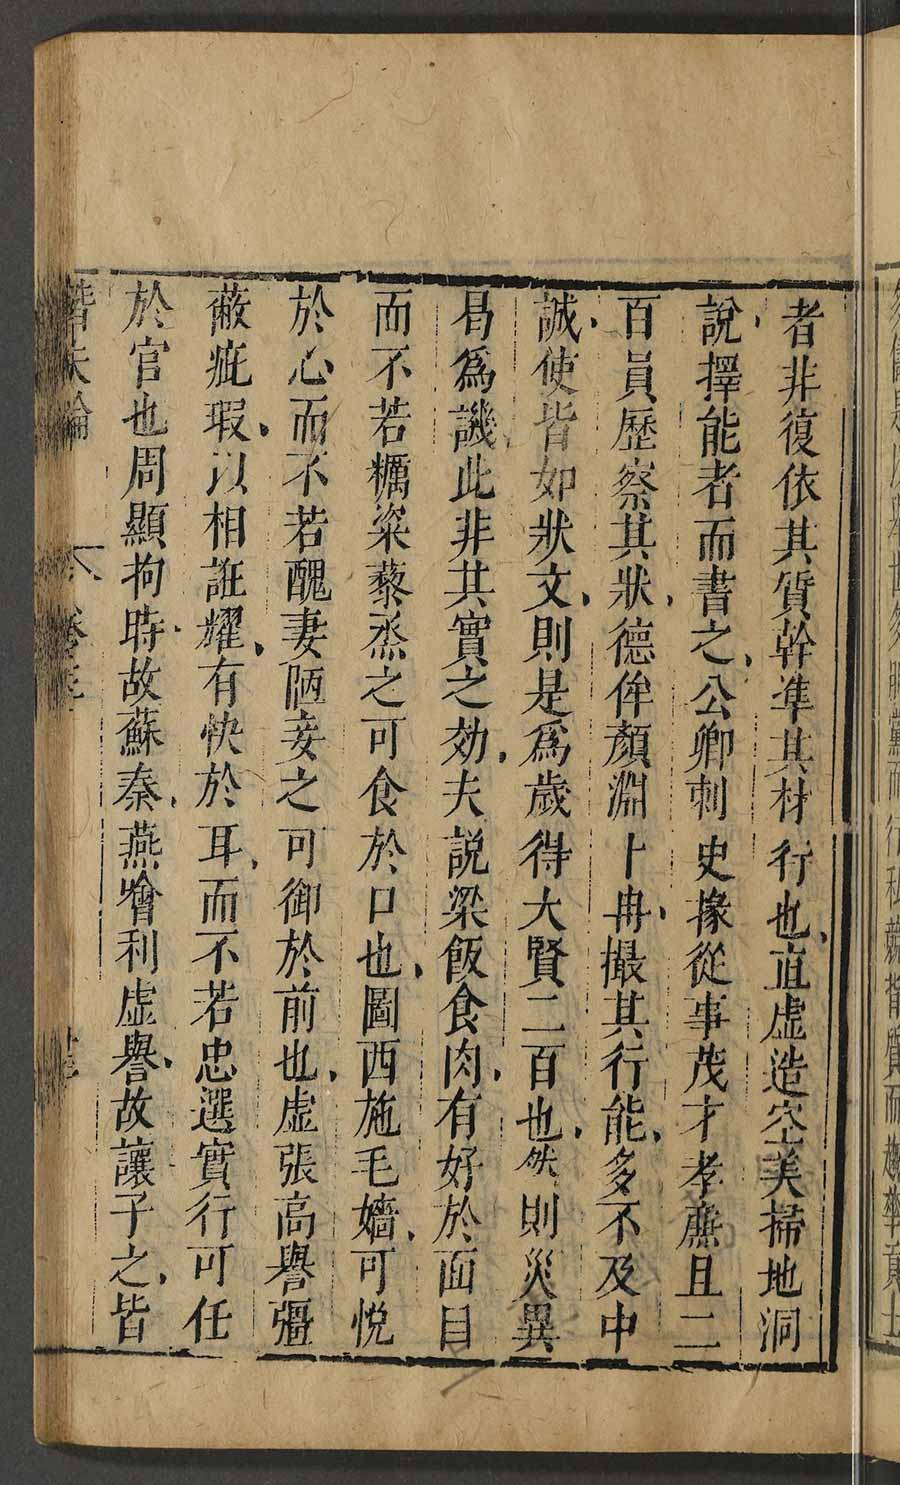 者非復依其質幹準其材行也直虛造空美掃地洞
說擇能者而書之公卿刺史掾從事茂才孝廉且二
百員歷察其狀德侔顏淵卜冉撮其行能多不及中
誠使皆如狀文則是爲歲得大賢二百也然則災異
曷爲譏此非其實之効夫説梁飯食肉有好於面目
而不若糲粢藜烝之可食於口也圖西施毛嬙可悅
於心而不若醜妻陋妾之可御於前也虛張高譽彊
蔽疵瑕以相誑耀有快於耳而不若忠選實行可任
於官也周顯拘時故蘇秦燕噲利虛譽故讓子之皆
潛夫論 卷